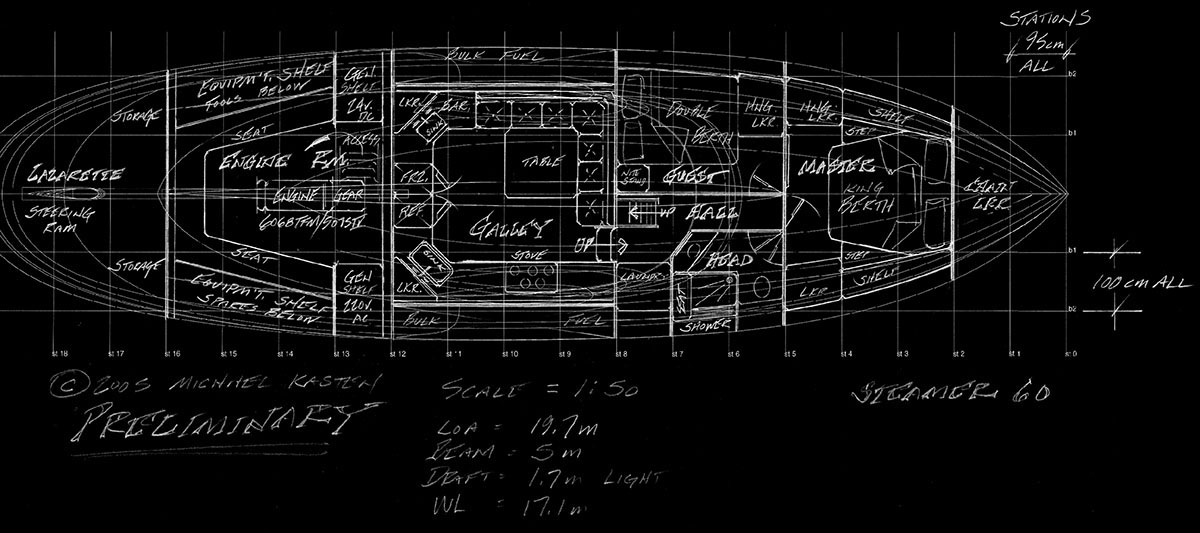 STATIONS
95cm
ALL
BULK FUEL
b2
EQUIPM'T. SHELF
TOOLS BELOW
GEN
SHELF
24V.
DC
LKR.
SINK
BAR
DOUBLE
BERTH
HNG
LKR
HNG.
LKR.
SHELF
STEP
STORAGE
SEAT
ACCESS
b1
ENGINE RM.
TABLE
LAZARETTE
FRZ.
REF.
NITE
STAND
GUEST
MASTER
KING
BERTH
CHAIN
LKR
ENGINE
GEAR
STEERING
RAM
GALLEY
UP
HALL
UP
STORAGE
SEAT
SINK
STOVE
HEAD
STEP
b1
EQUIPM'T. SHELF
SPARES BELOW
GEN
SHELF
220V.
AC
LKR.
LAUNDRY
SEAT
LKR
SHELF
100 cm ALL
BULK FUEL
SHOWER
b2
st 18 st 17 st 16 st 15 st 14 st 13 st 12 st 11 st 10 st 9 st 8 st 7 st 6 st 5 st 4 st 3 st 2 st 1 st 0
© 2005 MICHAEL KASTEN
PRELIMINARY
SCALE = 1:50
LOA = 19.7m
BEAM = 5m
DRAFT = 1.7m LIGHT
WL = 17.1m
STEAMER 60